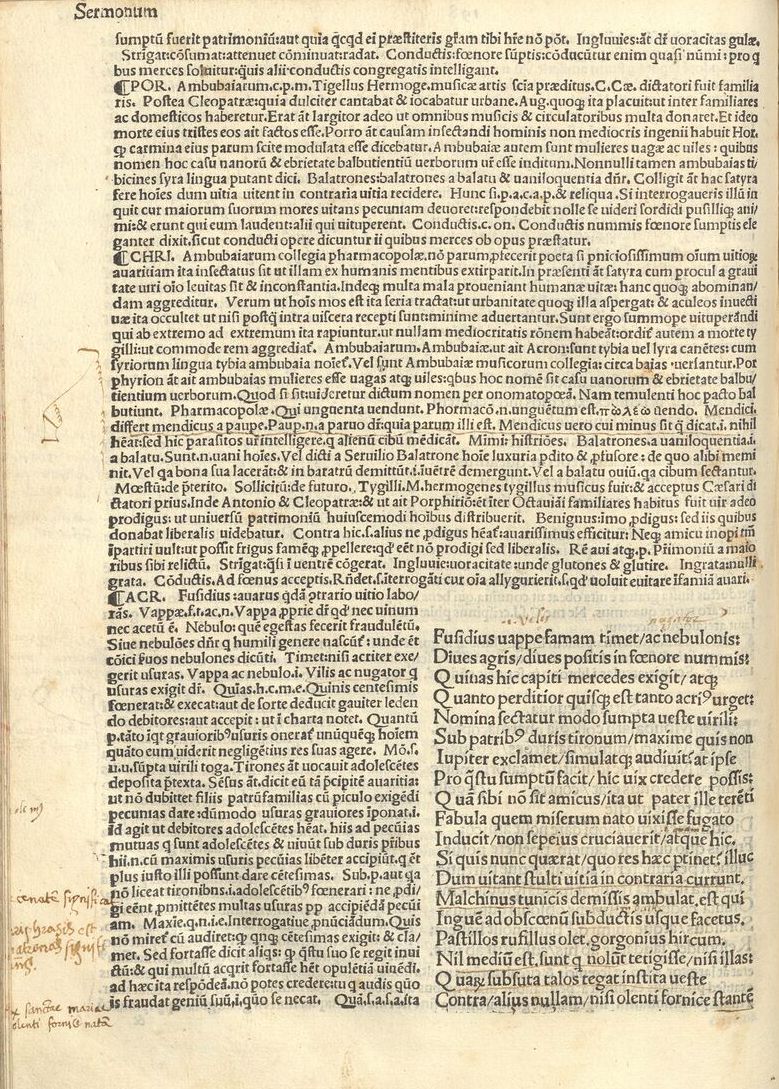 Sermonum
sumptū fuerit patrimoniū:aut quia q̄cqd ei præstiteris gr̄am tibi hr̄e nō pōt. Ingluuies:āt dr̄ uoracitas gulæ.
Strigat:cōsumat:attenuet cōminuat:radat. Conductis:fœnore sūptis:cōducūtur enim quasi nūmi:pro q
bus merces soluitur:quis alii conductis congregatis intelligant.
¶POR. Ambubaiarum.c.p.m.Tigellus Hermoge.musicæ artis scia præditus.C.Cæ. dictatori fuit familia
ris. Postea Cleopatræ:quia dulciter cantabat & iocabatur urbane.Aug.quoq; ita placuit:ut inter familiares
ac domesticos haberetur.Erat āt largitor adeo ut omnibus musicis & circulatoribus multa donaret.Et ideo
morte eius tristes eos ait factos esse.Porro āt causam insectandi hominis non mediocris ingenii habuit Hor.
q carmina eius parum scite modulata esse dicebatur.Ambubaiæ autem sunt mulieres uagæ ac uiles : quibus
nomen hoc casu uanorū & ebrietate balbutientiū uerborum ur̄ esse inditum.Nonnulli tamen ambubaias ti/
bicines syra lingua putant dici. Balatrones:balatrones a balatu & uaniloquentia dn̄r. Colligit āt hac satyra
fere hoīes dum uitia uitent in contraria uitia recidere. Hunc si.p.a.c.a.p.& reliqua .Si interrogaueris illū in
quit cur maiorum suorum mores uitans pecuniam deuoret:respondebit nolle se uideri sordidi pusilliq; ani/
mi:& erunt qui eum laudent:alii qui uituperent. Conductis.c.on. Conductis nummis fœnore sumptis ele
ganter dixit.sicut conducti opere dicuntur ii quibus merces ob opus præstatur.
¶CHRI. Ambubaiarum collegia pharmacopolæ.nō parum.pfecerit poeta si pniciosissimum oīum uitiorꝝ
auaritiam ita insectatus sit ut illam ex humanis mentibus extirparit.In præsenti āt satyra cum procul a graui
tate uiri oīo leuitas sit & inconstantia.Indeq; multa mala proueniant humanæ uitæ: hanc quoq; abominan/
dam aggreditur. Verum ut hoīs mos est ita seria tractat:ut urbanitate quoq; illa aspergat: & aculeos inuecti
uæ ita occultet ut nisi postq̄ intra uiscera recepti sunt:minime aduertantur.Sunt ergo summope uituperādi
qui ab extremo ad extremum ita rapiuntur.ut nullam mediocritatis rōnem habeāt:ordit᷑ autem a morte ty
gilli:ut commode rem aggrediat᷑. Ambubaiarum.Ambubaiæ.ut ait Acron:sunt tybia uel lyra canētes: cum
syriorum lingua tybia ambubaia noīet᷑. Vel sunt Ambubaiæ musicorum collegia: circa baias uersantur.Por
phyrion āt ait ambubaias mulieres esse uagas atq; uiles:qbus hoc nomē sit casu uanorum & ebrietate balbu/
tientium uerborum.Quod si sit:uideretur dictum nomen per onomatopœā. Nam temulenti hoc pacto bal
butiunt. Pharmacopolæ.Qui unguenta uendunt. Pharmacō.n.unguētum est.πωλέω uendo. Mendici.
differt mendicus a paupe.Paup.n.a paruo dr̄:quia parum illi est. Mendicus uero cui minus sit q̄ dicat.i. nihil
hēat:sed hic parasitos ur̄ intelligere.q alienū cibū mēdicāt. Mimi: histriōes. Balatrones.a uaniloquentia.i.
a balatu.Sunt.n.uani hoīes.Vel dicti a Seruilio Balatrone hoīe luxuria pdito & pfusore : de quo alibi memi
nit.Vel qa bona sua lacerāt:& in baratrū demittūt.i.uētrē demergunt.Vel a balatu ouiū.qa cibum sectantur.
Mœstū:de pterito. Sollicitū:de futuro. Tygilli.M.hermogenes tygillus musicus fuit:& acceptus Cæsari di
ctatori prius.Inde Antonio & Cleopatræ:& ut ait Porphiriō:et īter Octauiāi familiares habitus fuit uir adeo
prodigus:ut uniuersū patrimoniū huiuscemodi hoībus distribuerit. Benignus:imo pdigus: sed iis quibus
donabat liberalis uidebat. Contra hic.s.alius ne pdigus hēat᷑:auarissimus efficitur: Neq; amicu inopi tm̄
īpartiri uult:ut possit frigus famēq; ppellere:qd eēt nō prodigi sed liberalis. Rē aui atq; p. Pr̄imoniū a maio
ribus sibi relictū. Strigat:q̄si ī uentrē cōgerat. Ingluuie:uoracitate :unde glutones & glutire. Ingrata:nulli
grata. Cōductis.Ad fœnus acceptis.Rn̄det.s.īterrogāti cur oīa allygurierit.s.qd uoluit euitare īfamiā auari.
¶ACR. Fusidius :auarus qdā ɔtrario uitio labo/
rās. Vappæ.f.t.ac.n.Vappa pprie dr̄ qd nec uinum
nec acetū ē. Nebulo: quē egestas fecerit fraudulētū.
Siue nebulōes dn̄r q humili genere nascūt᷑: unde ēt
cōici ꝑuos nebulones dicūti. Timet:nisi acriter exe/
gerit usuras. Vappa ac nebulo.i. Vilis ac nugator q
usuras exigit dr̄. Quīas.h.c.m.e.Quinis centesimis
fœnerat᷑:& execat:aut de sorte deducit gauiter leden
do debitores:aut accepit : ut ī charta notet. Quantū
p.tāto īqt grauioribꝰ usuris onerat᷑ unūquēq; hoīem
quāto eum uiderit negligētius res suas agere. Mō.s.
u.u.sūpta uirili toga.Tirones āt uocauit adolescētes
deposita ptexta. Sēsus āt.dicit eū tā pcipitē auaritia:
ut nō dubittet filiis patrūfamilias cū piculo exigēdi
pecunias dare :dūmodo usuras grauiores īponat.i.
īd agit ut debitores adolescētes hēat. hiis ad pecūias
mutuas q sunt adolescētes & uiuūt sub duris pr̄ibus
hii.n.cū maximis usuris pecuias libēter accipiūt.q ēt
plus iusto illi possunt dare cētesimas. Sub.p.aut qa
nō liceat tironibns.i.adolescētibꝰ fœnerari : ne pdi/
gi eēnt pmittētes multas usuras pp accipiēdā pecūi
am. Maxīe.q.n.i.e.Interrogatiue pnūciādum.Quis
nō miret᷑ cū audiret:q qnq; cētesimas exigit: & cla/
met. Sed fortasse dicit aliqs: q qstu suo se regit inui
ctū:& qui multū acqrit fortasse hēt opulētiā uiuēdi.
ad hæc ita respōdeā.nō potes credere:tu q audis quō
is fraudat geniū suū.i.quo se necat. Quā.s.a.s.a.sta
Fusidius uappe famam timet/ac nebulonis:
Diues agris/diues positis in fœnore nummis:
Quinas hic capiti mercedes exigit/ atq;
Quanto perditior quisq; est tanto acriꝰ urget:
Nomina sectatur modo sumpta ueste uirili:
Sub patribꝰ duris tironum/maxime quis non
Iupiter exclamet/simulatq; audiuit᷑ at ipse
Pro q̄stu sumptum facit/ hic uix credere possis:
Quā sibi nō sit amicus/ita ut pater ille terēti
Fabula quem miserum nato uixisse fugato
Inducit/non sepeius cruciauerit/atque hic.
Si quis nunc quærat/quo res hæc ptinet᷑ illuc
Dum uitant stulti uitia in contraria currunt.
Malchinus tunicis demissis ambulat.est qui
Inguē ad obscœnū subductis usque facetus.
Pastillos rufillus olet.gorgonius hircum.
Nil mediū est.sunt q nolūt tetigisse/nisi illas:
Quarꝝ subsuta talos tegat instita ueste
Contra/alius nullam/nisi olenti fornice stantē